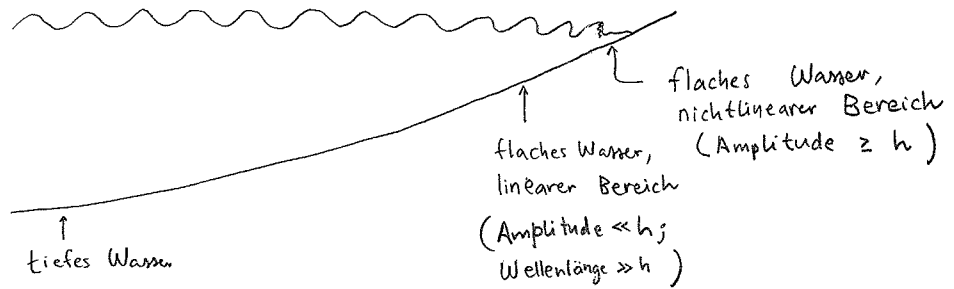 flaches Wasser,
nichtlinearer Bereich
(Amplitude ≥ h)
flaches Wasser,
linearer Bereich
(Amplitude << h;
Wellenlänge >> h)
tiefes Wasser